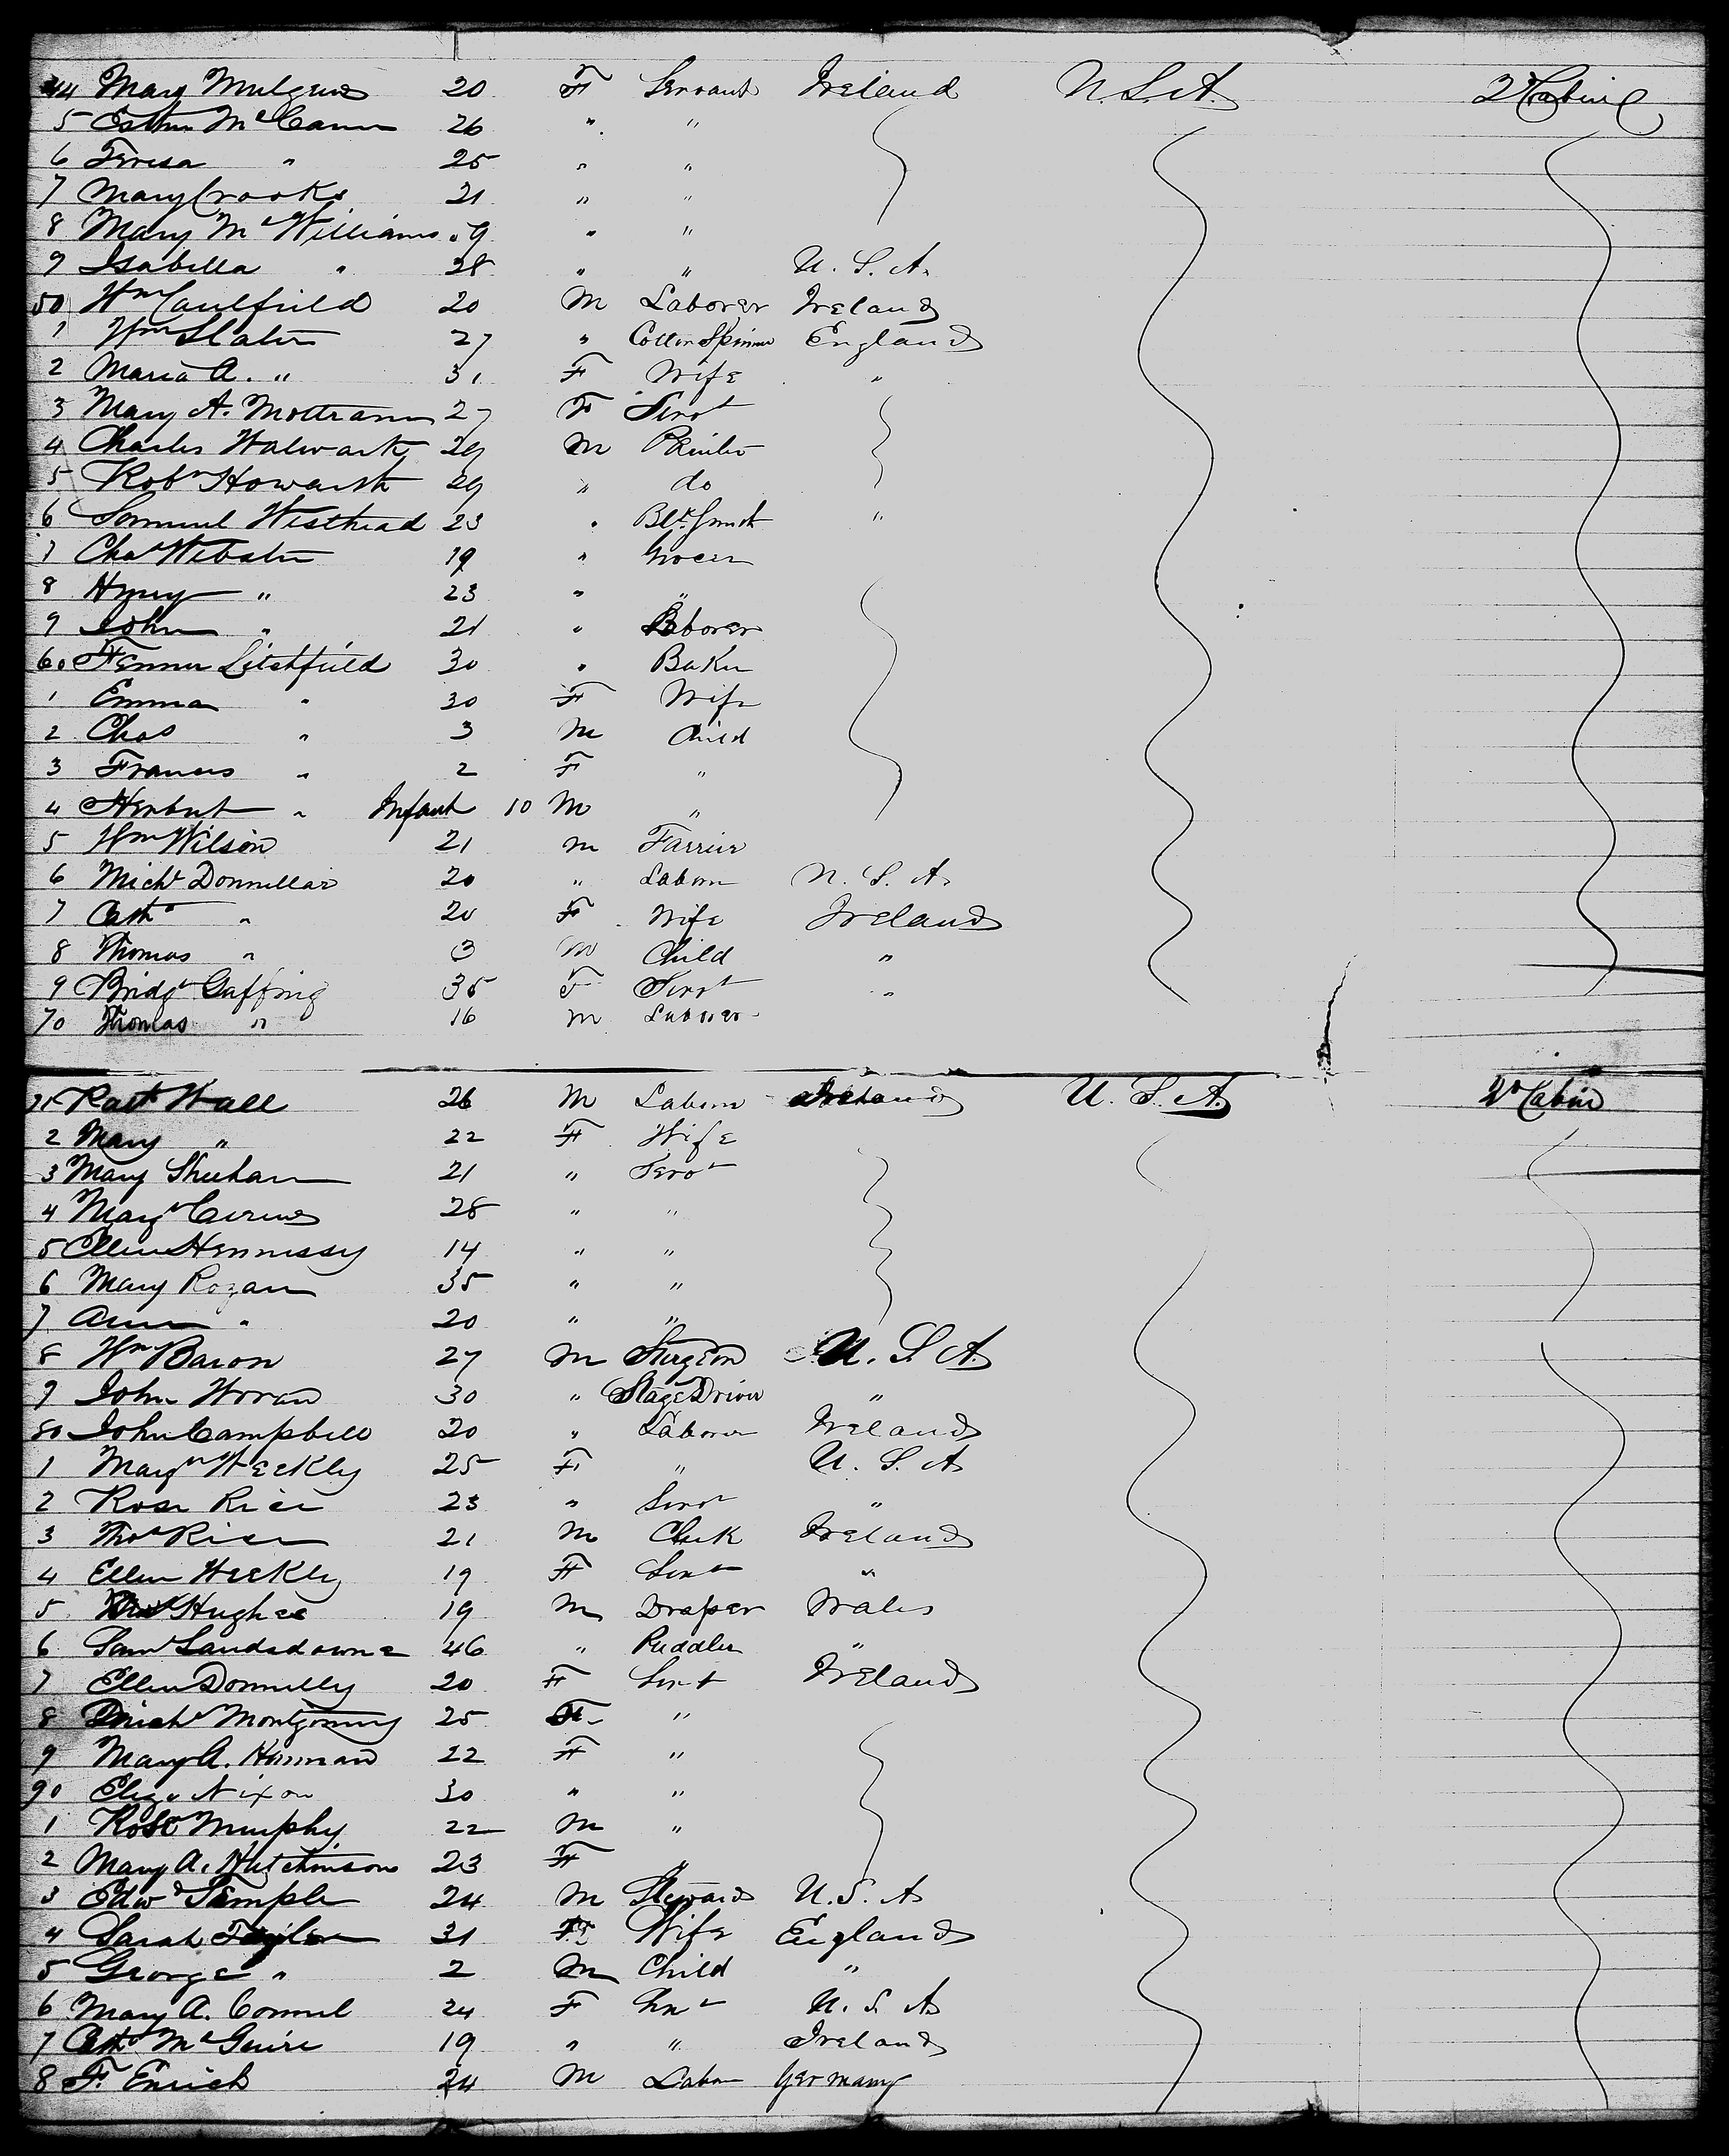 44 Mary Mulgrew 20 F Servant Ireland U.S.A. 2d Cabin
5 Esther McCann 26 " "
6 Teresa " 25 " "
7 Mary Crooks 21 " "
8 Mary McWilliams 9 " "
9 Isabella " 28 " " U.S.A.
50 Wm Caulfield 20 M Laborer Ireland
1 Wm Slater 27 " Cotton Spinner England
2 Maria A. " 31 F Wife "
3 Mary A. Mottram 27 F Servt
4 Charles Walwark 29 M Painter
5 Robt Howarth 29 " do
6 Samuel Westhead 23 " Blk Smith "
7 Chas Webster 19 " Grocer
8 Henry " 23 " "
9 John " 21 " Laborer
60 Fenner Litchfield 30 " Baker
1 Emma " 30 F Wife
2 Chas " 3 M Child
3 Frances " 2 F "
4 Herbert " Infant 10 M "
5 Wm Wilson 21 M Farrier
6 Michl Donnellan 20 " Laborer U.S.A.
7 Cathe " 20 F Wife Ireland
8 Thomas " 3 M Child "
9 Bridgt Gaffing 35 F Servt "
70 Thomas " 16 M Laborer
71 Patk Wall 26 M Laborer Ireland U.S.A. 2d Cabin
2 Mary " 22 F Wife
3 Mary Sheehan 21 " Servt
4 Margt 28 " "
5 Ellen Hennessy 14 " "
6 Mary Rogan 35 " "
7 Ann " 20 " "
8 Wm Baron 27 M Surgeon U.S.A.
9 John Horan 30 " Stage Driver "
80 John Campbell 20 " Laborer Ireland
1 Margt Weekly 25 F " U.S.A.
2 Rose Rice 23 " Servt "
3 Thos Rice 21 M Clerk Ireland
4 Ellen Weekly 19 F Servt "
5 Hughes 19 M Draper Wales
6 Saml Landsdowne 46 " Puddler "
7 Ellen Donnelly 20 F Servt Ireland
8 Montgomery 25 F "
9 Mary A. Hannan 22 F "
90 Eliza Nixon 30 " "
1 Robt Murphy 22 M "
2 Mary A. Hutchinson 23 F "
3 Edwd Temple 24 M Steward U.S.A
4 Sarah Taylor 31 F Wife England
5 George " 2 M Child "
6 Mary A. Connel 24 F Servt U.S.A
7 Cath McGuire 19 " " Ireland
8 F. Enrich 24 M Labor Germany